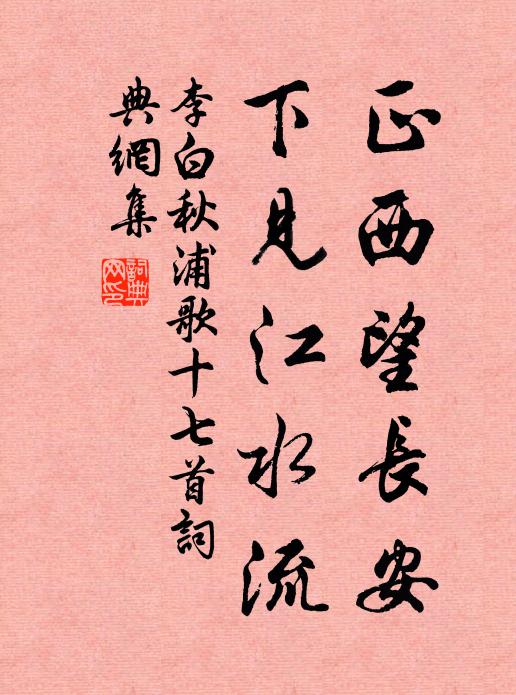 正西望長安
下見江水流
李白秋浦歌十七首詞
典網集
詞典
网印